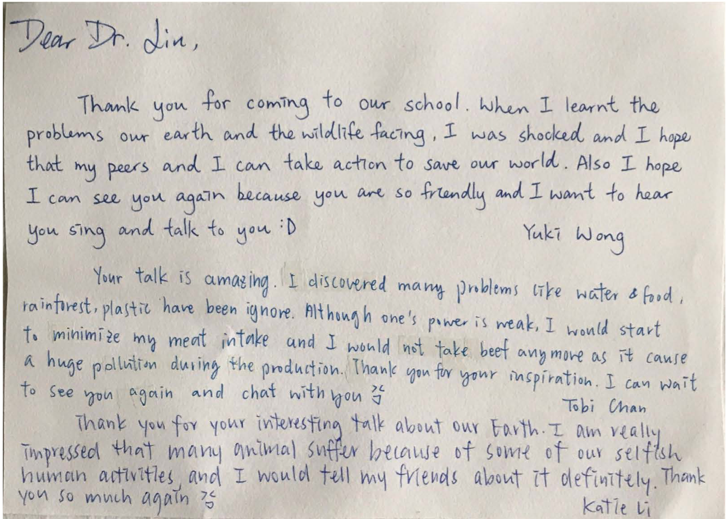 Dear Dr. Lin,
Thank you for coming to our school. When I learnt the
problems our earth and the wildlife facing, I was shocked and I hope
that my peers and I can take action to save our world. Also I hope
I can see you again because you are so friendly and I want to hear
you sing and talk to you :D Yuki Wong
Your talk is amazing. I discovered many problems like water & food,
rainforest, plastic have been ignore. Although one's power is weak, I would start
to minimize my meat intake and I would not take beef anymore as it cause
a huge pollution during the production. Thank you for your inspiration. I can wait
to see you again and chat with you
Tobi Chan
Thank you for your interesting talk about our Earth. I am really
impressed that many animal suffer because of some of our selfish
human activities, and I would tell my friends about it definitely. Thank
you so much again
Katie Li